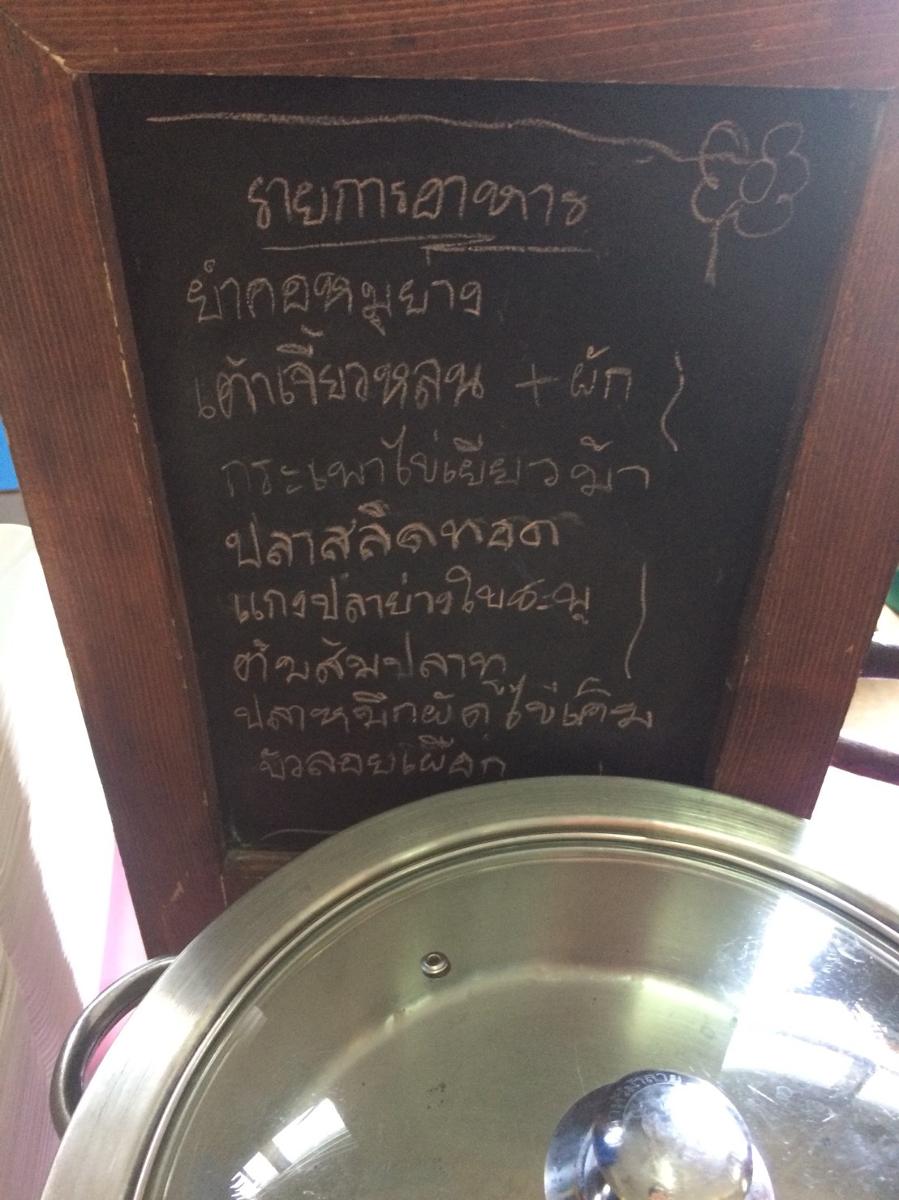 รายการอาหาร
ยำคอหมูย่าง
เต้าเจี้ยวหลน + ผัก
กระเพาไข่เยียวม้า
ปลาสลิดทอด
แกงปลาย่างใบชะพู
ต้มส้มปลาทู
ปลาหมึกผัดไข่เค็ม
บัวลอยเผือก